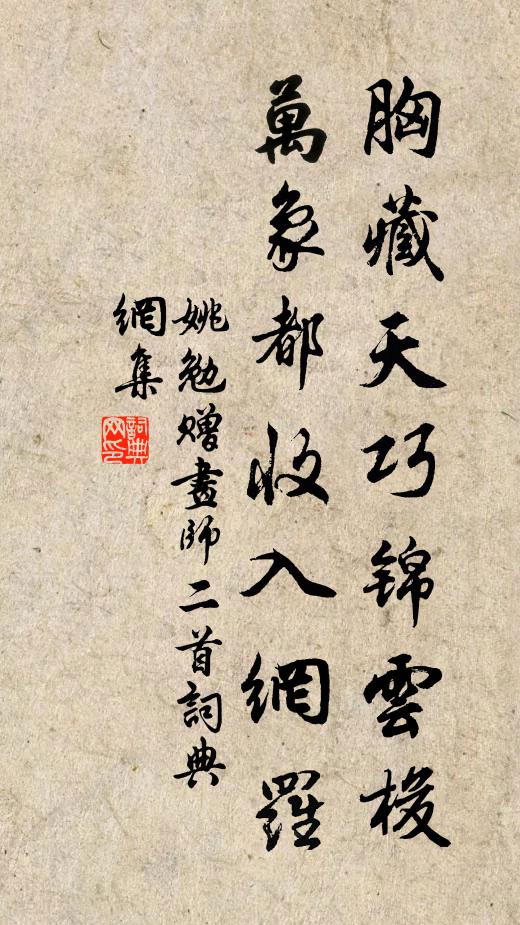 胸藏天巧錦雲梭
萬象都收入網羅
姚勉贈畫師二首詞典
網集
詞典
网印